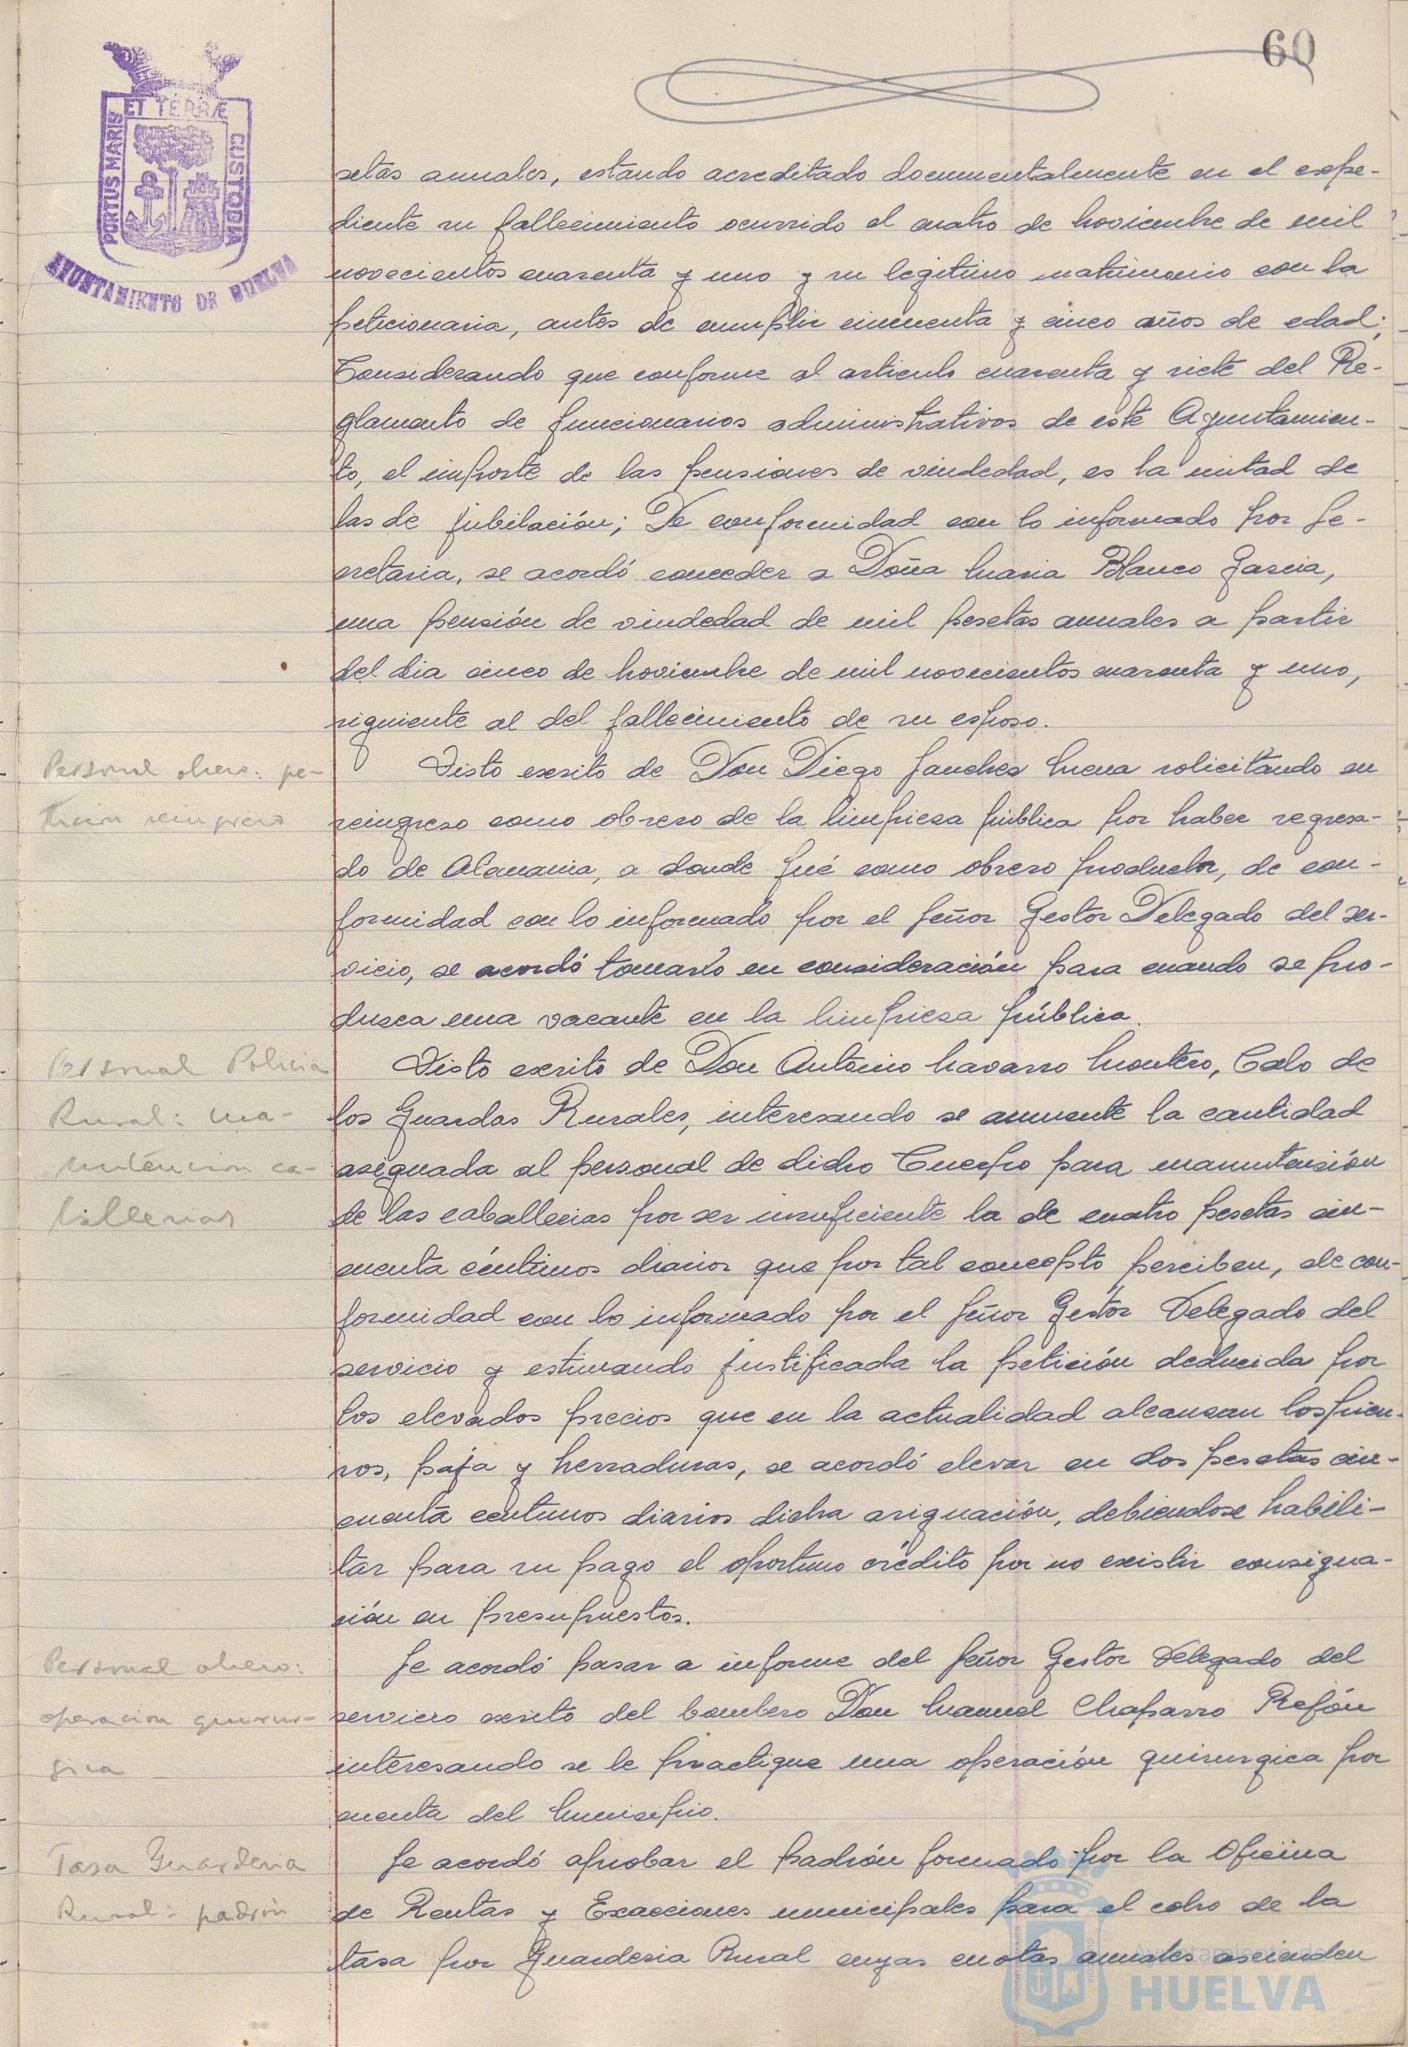 60
PORTUS MARIS ET TERRÆ CUSTODIA
AYUNTAMIENTO DE HUELVA
setas anuales, estando acreditado documentalmente en el expe-
diente su fallecimiento ocurrido el cuatro de Noviembre de mil
novecientos cuarenta y uno y su legitimo matrimonio con la
peticionaria, antes de cumplir cincuenta y cinco años de edad;
Considerando que conforme al articulo cuarenta y siete del Re-
glamento de funcionarios administrativos de este Ayuntamien-
to, el importe de las pensiones de viudedad, es la mitad de
las de jubilación; De conformidad con lo informado por Se-
cretaria, se acordó conceder a Doña Maria Blanco Garcia,
una pensión de viudedad de mil pesetas anuales a partir
del dia cinco de Noviembre de mil novecientos cuarenta y uno,
siguiente al del fallecimiento de su esposo.
Personal obrero: pe-
tición reingreso
Visto escrito de Don Diego Sanchez Mena solicitando su
reingreso como obrero de la limpieza pública por haber regresa-
do de Alemania, a donde fué como obrero productor, de con-
formidad con lo informado por el Señor Gestor Delegado del ser-
vicio, se acordó tomarlo en consideración para cuando se pro-
duzca una vacante en la limpieza pública.
Personal Policia
Rural: ma-
nutencion ca-
ballerias
Visto escrito de Don Antonio Navarro Montero, Cabo de
los Guardas Rurales, interesando se aumente la cantidad
asignada al personal de dicho Cuerpo para manutensión
de las caballerias por ser insuficiente la de cuatro pesetas cin-
cuenta céntimos diarios que por tal concepto perciben, de con-
formidad con lo informado por el Señor Gestor Delegado del
servicio y estimando justificada la petición deducida por
los elevados precios que en la actualidad alcanzan los pien-
sos, paja y herraduras, se acordó elevar en dos pesetas cin-
cuenta centimos diarios dicha asignación, debiendose habili-
tar para su pago el oportuno crédito por no existir consigna-
ción en presupuestos.
Personal obrero:
operacion quirur-
gica
Se acordó pasar a informe del Señor Gestor Delegado del
servicio escrito del bombero Don Manuel Chaparro Rejón
interesando se le practique una operación quirurgica por
cuenta del Municipio.
Tasa Guarderia
Rural: padrón
Se acordó aprobar el padrón formado por la Oficina
de Rentas y Exacciones municipales para el cobro de la
tasa por Guarderia Rural cuyas cuotas anuales ascienden
Ayuntamiento de
HUELVA